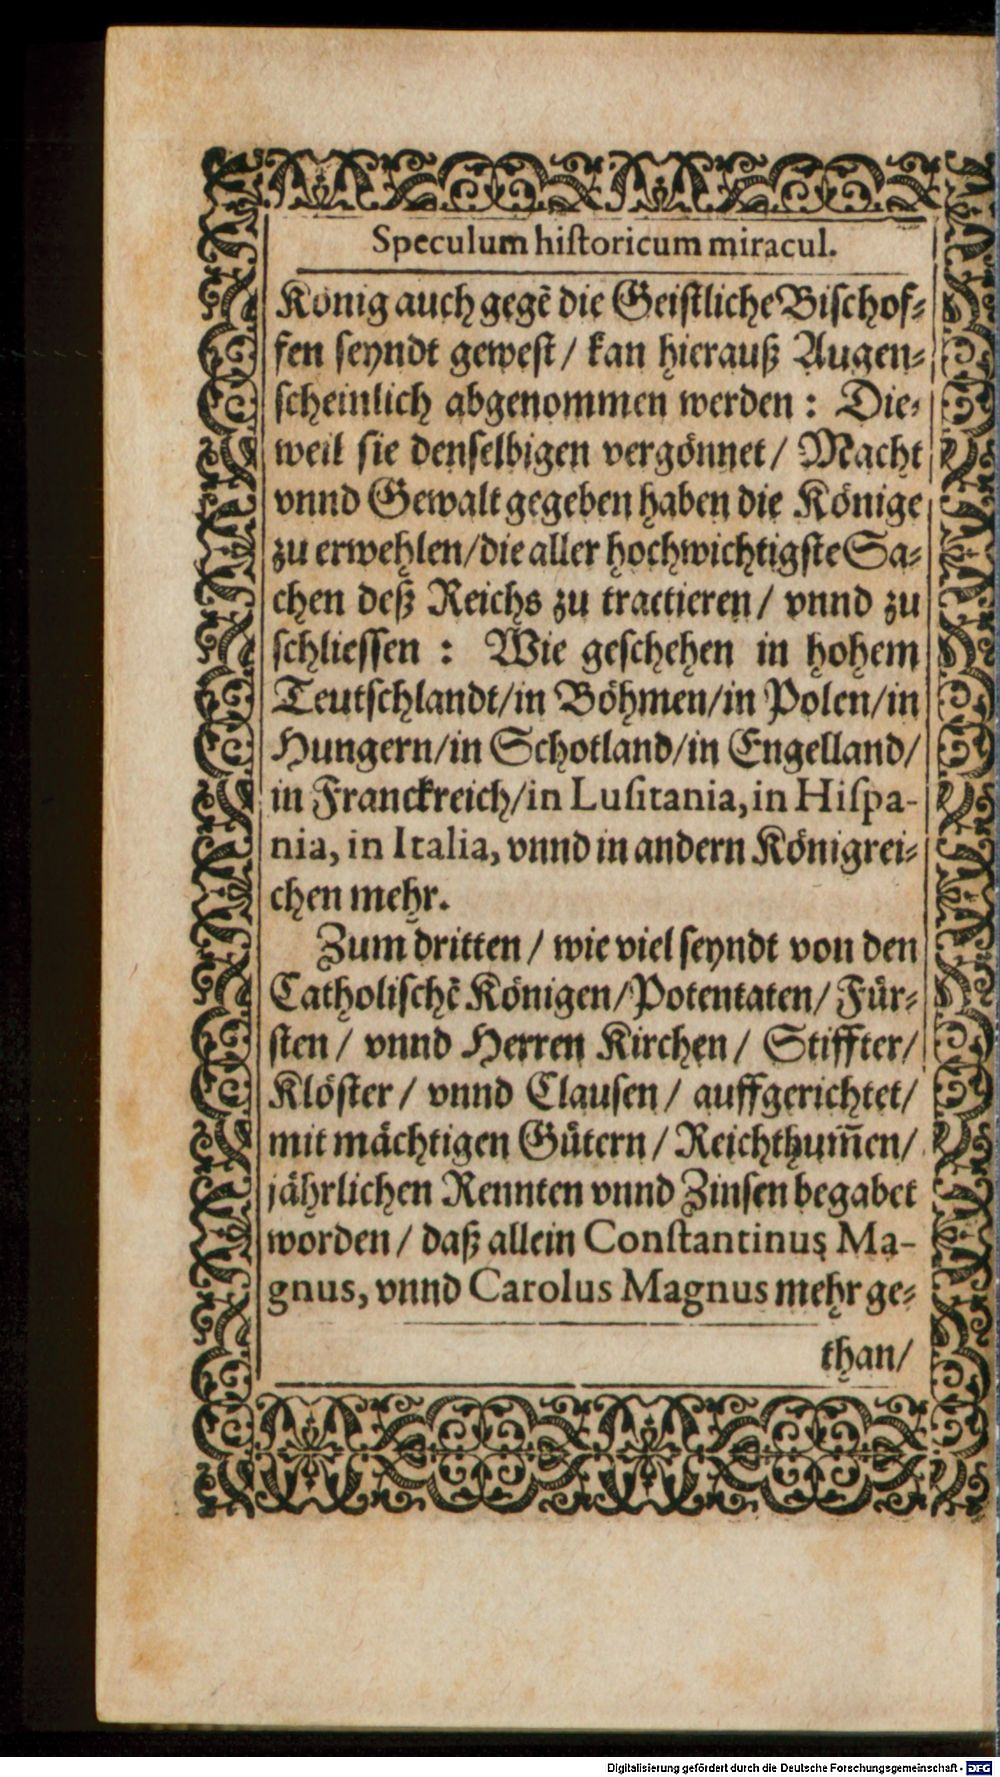 Speculum hiſtoricum miracul.
König auch gegẽ die Geiſtliche Biſchof⸗
fen ſeyndt geweſt / kan hierauß Augen⸗
ſcheinlich abgenommen werden : Die⸗
weil ſie denſelbigen vergönnet / Macht
vnnd Gewalt gegeben haben die Könige
zu erwehlen/die aller hochwichtigſte Sa⸗
chen deß Reichs zu tractieren / vnnd zu
ſchlieſſen : Wie geſchehen in hohem
Teutſchlandt/in Böhmen/in Polen/in
Hungern/in Schotland/in Engelland/
in Franckreich/in Luſitania, in Hiſpa-
nia, in Italia, vnnd in andern Königrei⸗
chen mehr.
Zum dritten / wie viel ſeyndt von den
Catholiſchẽ Königen/Potentaten/ Für⸗
ſten / vnnd Herren Kirchen / Stiffter/
Klöſter / vnnd Clauſen / auffgerichtet/
mit mächtigen Gütern / Reichthum̃en/
jährlichen Rennten vnnd Zinſen begabet
worden / daß allein Conſtantinus Ma-
gnus, vnnd Carolus Magnus mehr ge⸗
than/
Digitalisierung gefördert durch die Deutsche Forschungsgemeinschaft - DFG